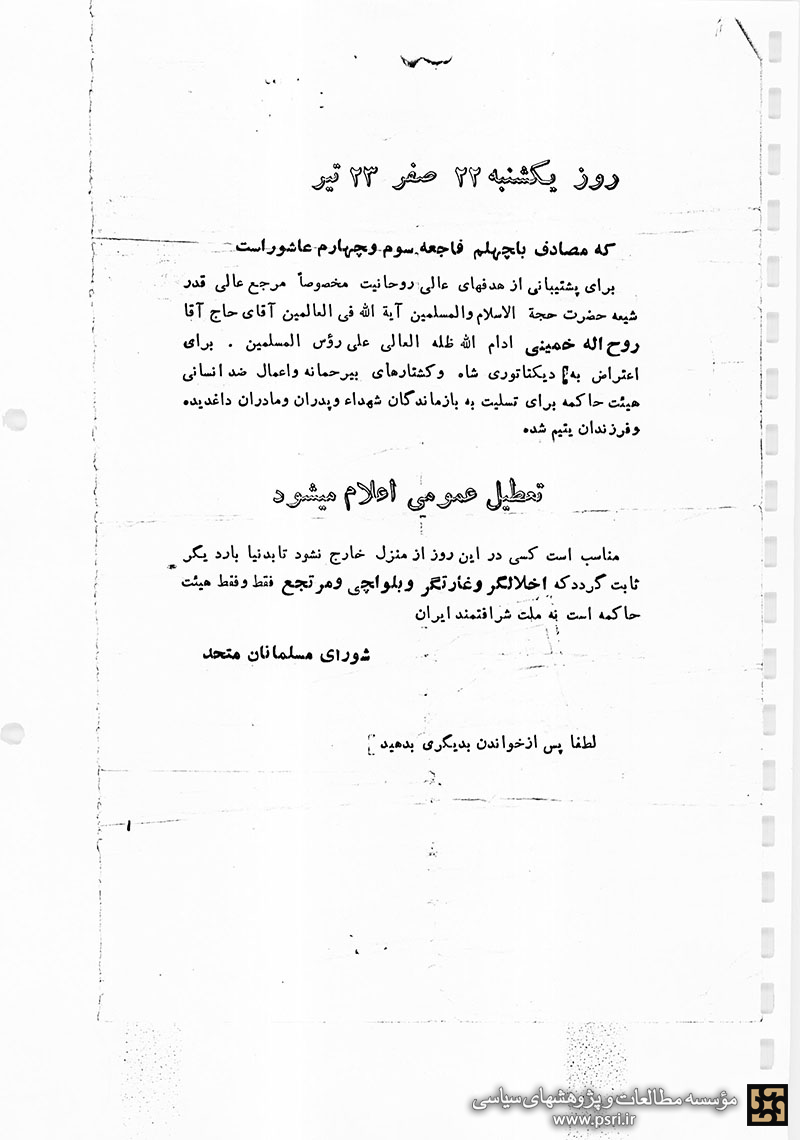 روز یکشنبه ۲۲ صفر ۲۳ تیر
که مصادف باچهلم فاجعه سوم وچهارم عاشوراست
برای پشتیبانی از هدفهای عالی روحانیت مخصوصاً مرجع عالی قدر
شیعه حضرت حجة الاسلام والمسلمین آیة الله فی العالمین آقای حاج آقا
روح اله خمینی ادام الله ظله العالی علی رؤس المسلمین . برای
اعتراض به دیکتاتوری شاه وکشتارهای بیرحمانه واعمال ضد انسانی
هیئت حاکمه برای تسلیت به بازماندگان شهداء وپدران ومادران داغدیده
وفرزندان یتیم شده
تعطیل عمومی اعلام میشود
مناسب است کسی در این روز از منزل خارج نشود تابدنیا بارد یگر
ثابت گرددکه اخلالگر وغارتگر وبلواچی ومرتجع فقط وفقط هیئت
حاکمه است نه ملت شرافتمند ایران
شورای مسلمانان متحد
لطفا پس ازخواندن بدیگری بدهید
مؤسسه مطالعات و پژوهشهای سیاسی
www.psri.ir